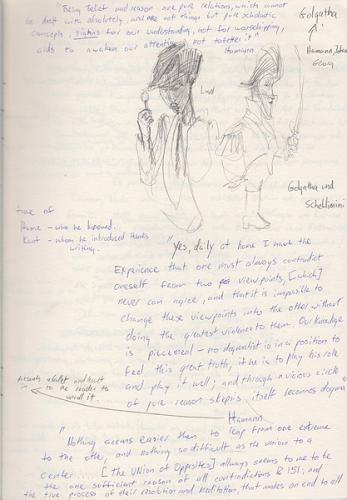 "Being, belief and reason are pure relations, which cannot
be dealt with absolutely, and are not things but pure scholastic
concepts, signs for our understanding, not for worshipping,
aids to awaken our attention, not to fetter it"
Hamann
Golgatha
Hamann, Johann
Georg
Golgatha und
Scheblimini
time of
Hume - who he
Kant - whom he introduced
writing.
"Yes, daily at home I have the
experience that one must always contradict
oneself from two viewpoints, [which]
never can agree, and that it is impossible to
change these viewpoints into the other without
doing the greatest violence to them. Our knowledge
is piecemeal - no dogmatist is in a position to
feel this great truth, if he is to play his role
and play it well; and through a vicious circle
of pure reason skepsis itself becomes dogma"
Hamann
in to the reader to
"Nothing seems easier than to leap from one extreme
to the other, and nothing so difficult as the union to a
center. ... [The Union of Opposites] always seems to me to be
the one sufficient reason of all contradictions & and
the true process of their resolution and meditation, that makes an end to all